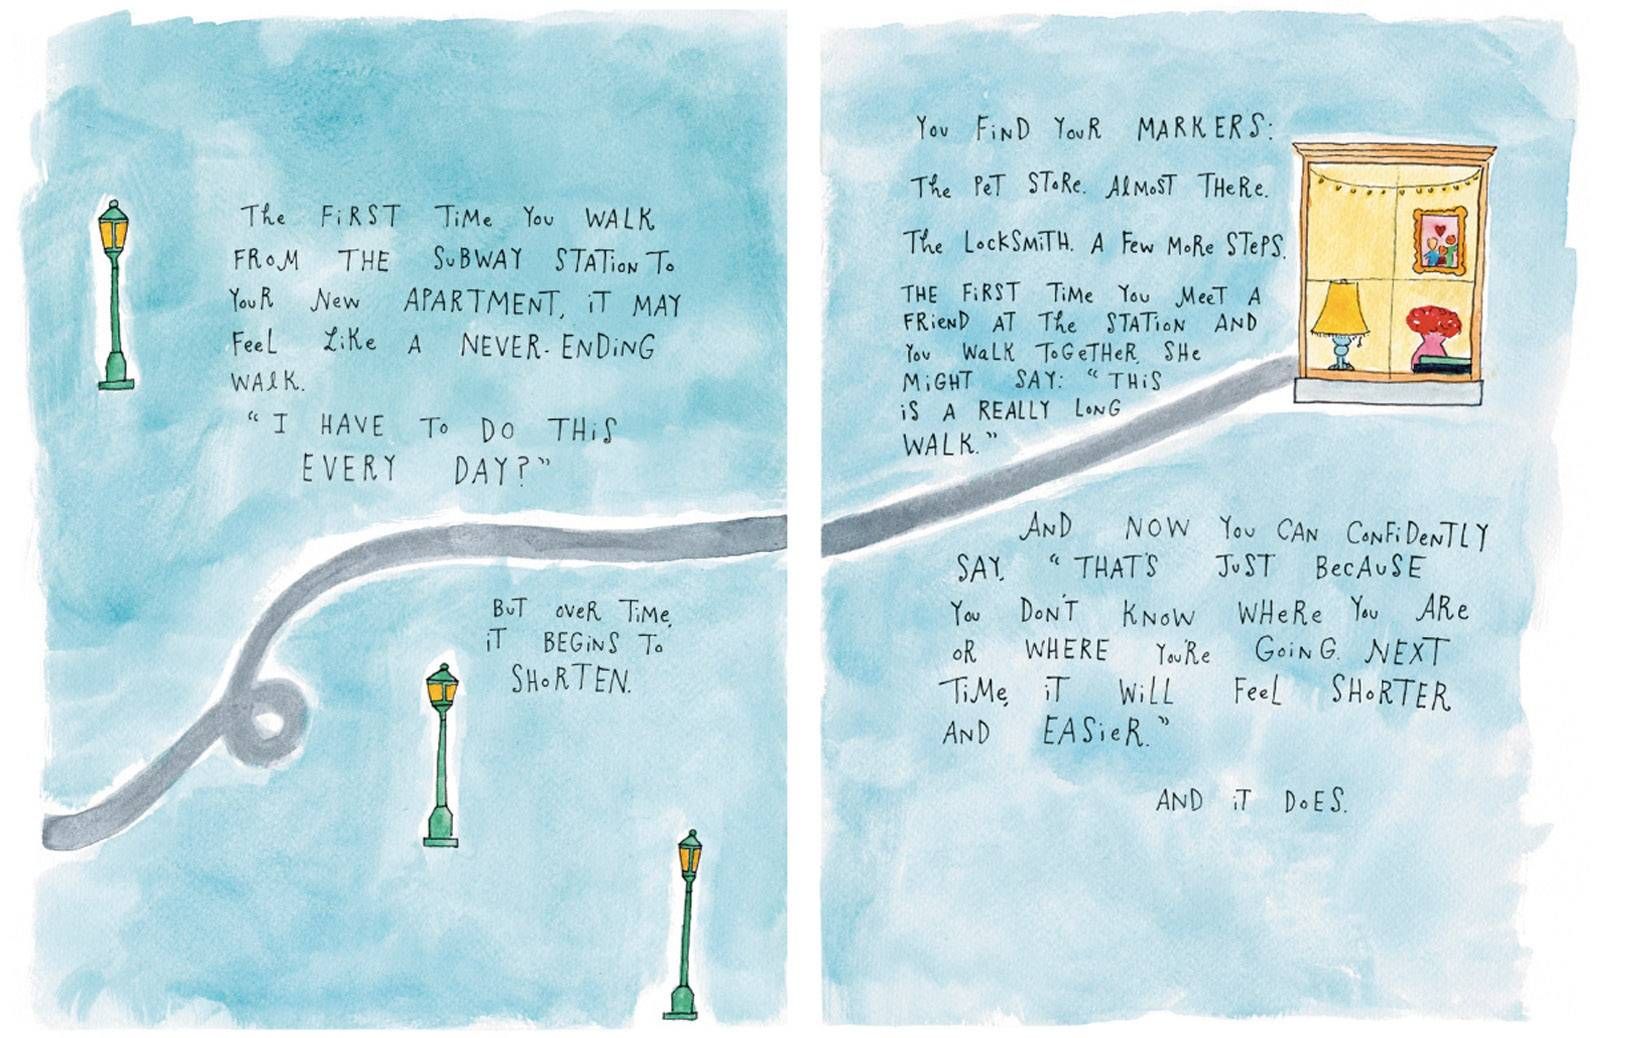 The FiRST TiMe You WALK
FRoM THE SuBWAY STATioN To
YouR New APARTMENT, iT MAY
FeeL LiKe A NEVER-ENDiNG
WAlK.
“I HAVE To DO THiS
EVERY DAY?”
BuT oveR TiMe,
iT BEGiNS To
SHoRTEN.
You FiND YouR MARKERS:
The PeT SToRe. AlMoST THeRe.
The LocKSMiTH. A Few MoRe STePS.
THE FiRST TiMe You MeeT A
FRieND AT The STATioN AND
You WaLK ToGeTHeR, SHe
MiGHT SAY: “THiS
iS A REALLY LoNG
WALK.”
AND NOW You CAN CoNFiDeNTLY
SAY, “THAT'S JuST BecAuSE
You DoN'T KNoW WHeRe You ARe
oR WHERE You'Re GoiNG. NEXT
TiMe, iT WiLL FeeL SHoRTER
AND EASieR.”
AND iT DoES.